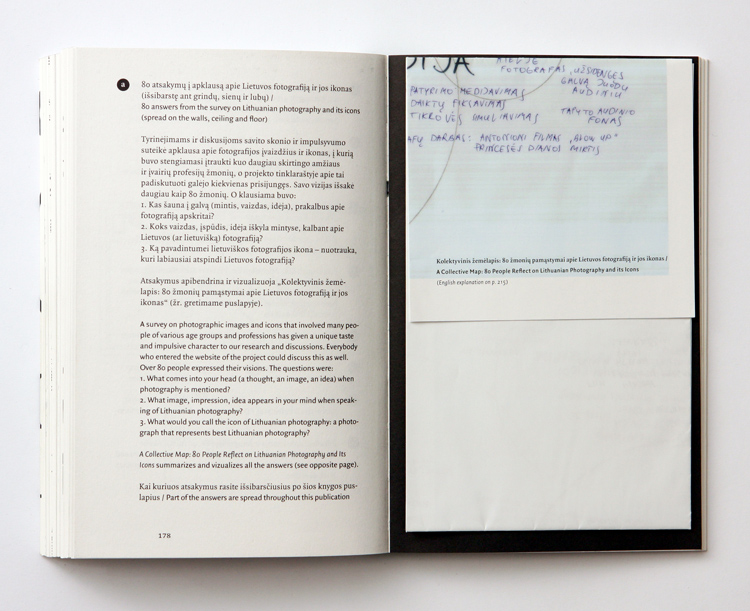 a
80 atsakymų į apklausą apie Lietuvos fotografiją ir jos ikonas
(išsibarstę ant grindų, sienų ir lubų) /
80 answers from the survey on Lithuanian photography and its icons
(spread on the walls, ceiling and floor)
Tyrinėjimams ir diskusijoms savito skonio ir impulsyvumo
suteikė apklausa apie fotografijos įvaizdžius ir ikonas, į kurią
buvo stengiamasi įtraukti kuo daugiau skirtingo amžiaus
ir įvairių profesijų žmonių, o projekto tinklaraštyje apie tai
padiskutuoti galėjo kiekvienas prisijungęs. Savo vizijas išsakė
daugiau kaip 80 žmonių. O klausiama buvo:
1. Kas šauna į galvą (mintis, vaizdas, idėja), prakalbus apie
fotografiją apskritai?
2. Koks vaizdas, įspūdis, idėja iškyla mintyse, kalbant apie
Lietuvos (ar lietuvišką) fotografiją?
3. Ką pavadintumei lietuviškos fotografijos ikona – nuotrauka,
kuri labiausiai atspindi Lietuvos fotografiją?
Atsakymus apibendrina ir vizualizuoja „Kolektyvinis žemė-
lapis: 80 žmonių pamąstymai apie Lietuvos fotografiją ir jos
ikonas“ (žr. gretimame puslapyje).
A survey on photographic images and icons that involved many peo-
ple of various age groups and professions has given a unique taste
and impulsive character to our research and discussions. Everybody
who entered the website of the project could discuss this as well.
Over 80 people expressed their visions. The questions were:
1. What comes into your head (a thought, an image, an idea) when
photography is mentioned?
2. What image, impression, idea appears in your mind when speak-
ing of Lithuanian photography?
3. What would you call the icon of Lithuanian photography: a photo-
graph that represents best Lithuanian photography?
A Collective Map: 80 People Reflect on Lithuanian Photography and Its
Icons summarizes and vizualizes all the answers (see opposite page).
Kai kuriuos atsakymus rasite išsibarsčiusius po šios knygos pus-
lapius / Part of the answers are spread throughout this publication
178
FOTOGRAFAS, UŽSIDENGĘS
GALVĄ JUODU
AUDINIU
PATYRIMO MEDIJAVIMAS
DAIKTŲ FIKSAVIMAS
TIKROVĖS EMULIAVIMAS
TAPYTO AUDINIO
FONAS
DARBAS: ANTONIONI FILMAS „BLOW UP“
PRINCESĖS DIANOS MIRTIS
Kolektyvinis žemėlapis: 80 žmonių pamąstymai apie Lietuvos fotografiją ir jos ikonas /
A Collective Map: 80 People Reflect on Lithuanian Photography and its Icons
(English explanation on p. 215)